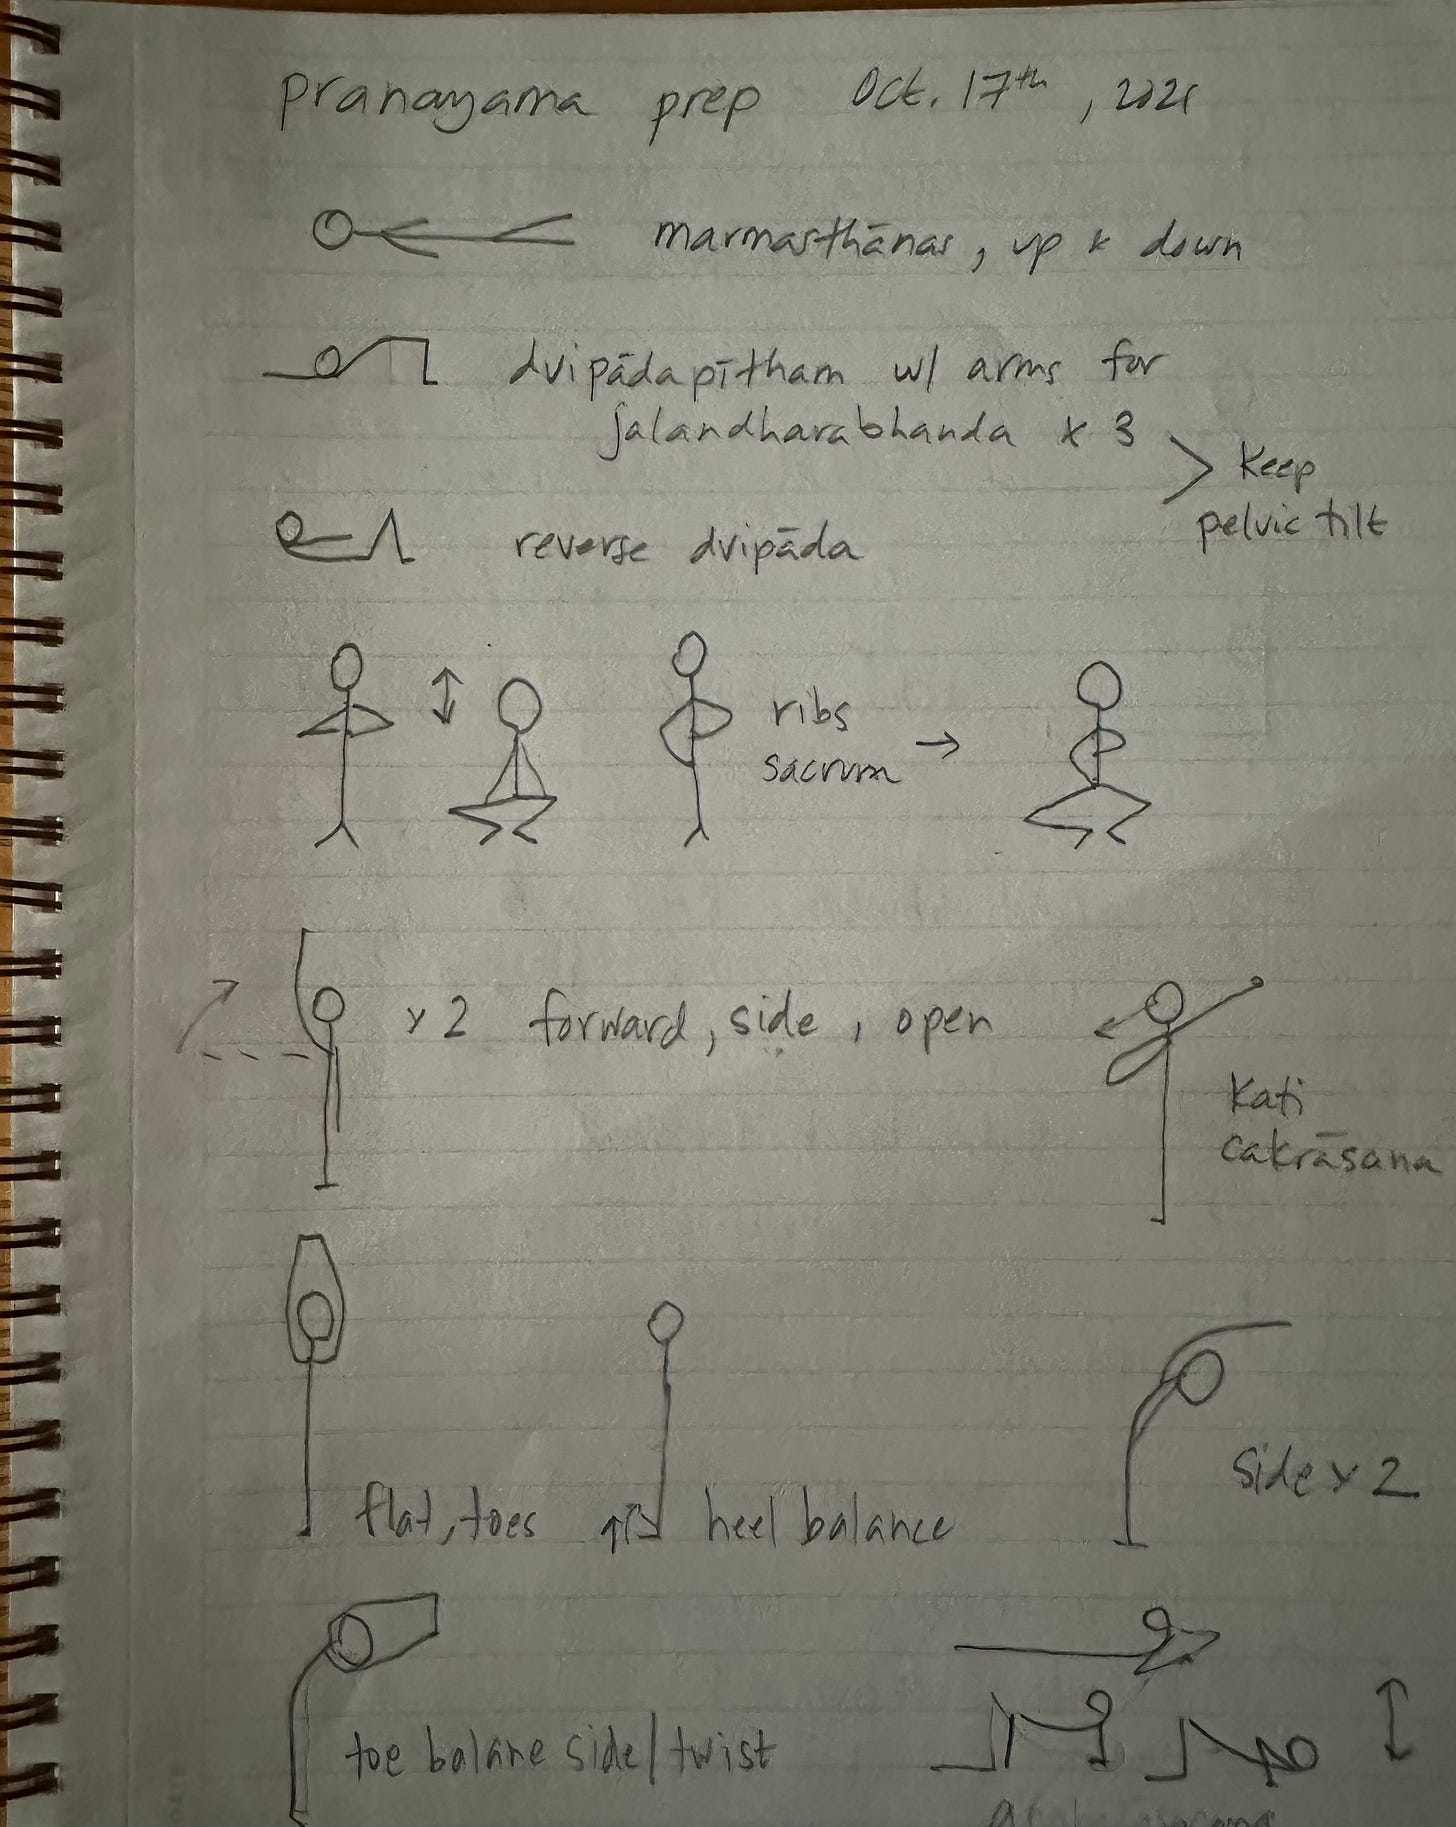 Pranayama prep Oct. 17th, 2021
marmasthānas, up & down
dvipādapītham w/ arms for
jalandharabhanda x 3
> Keep
pelvic tilt
reverse dvipāda
ribs
sacrum →
x 2 forward, side, open
Kati
cakrāsana
flat, toes
heel balance
Side x 2
toe balane side/twist